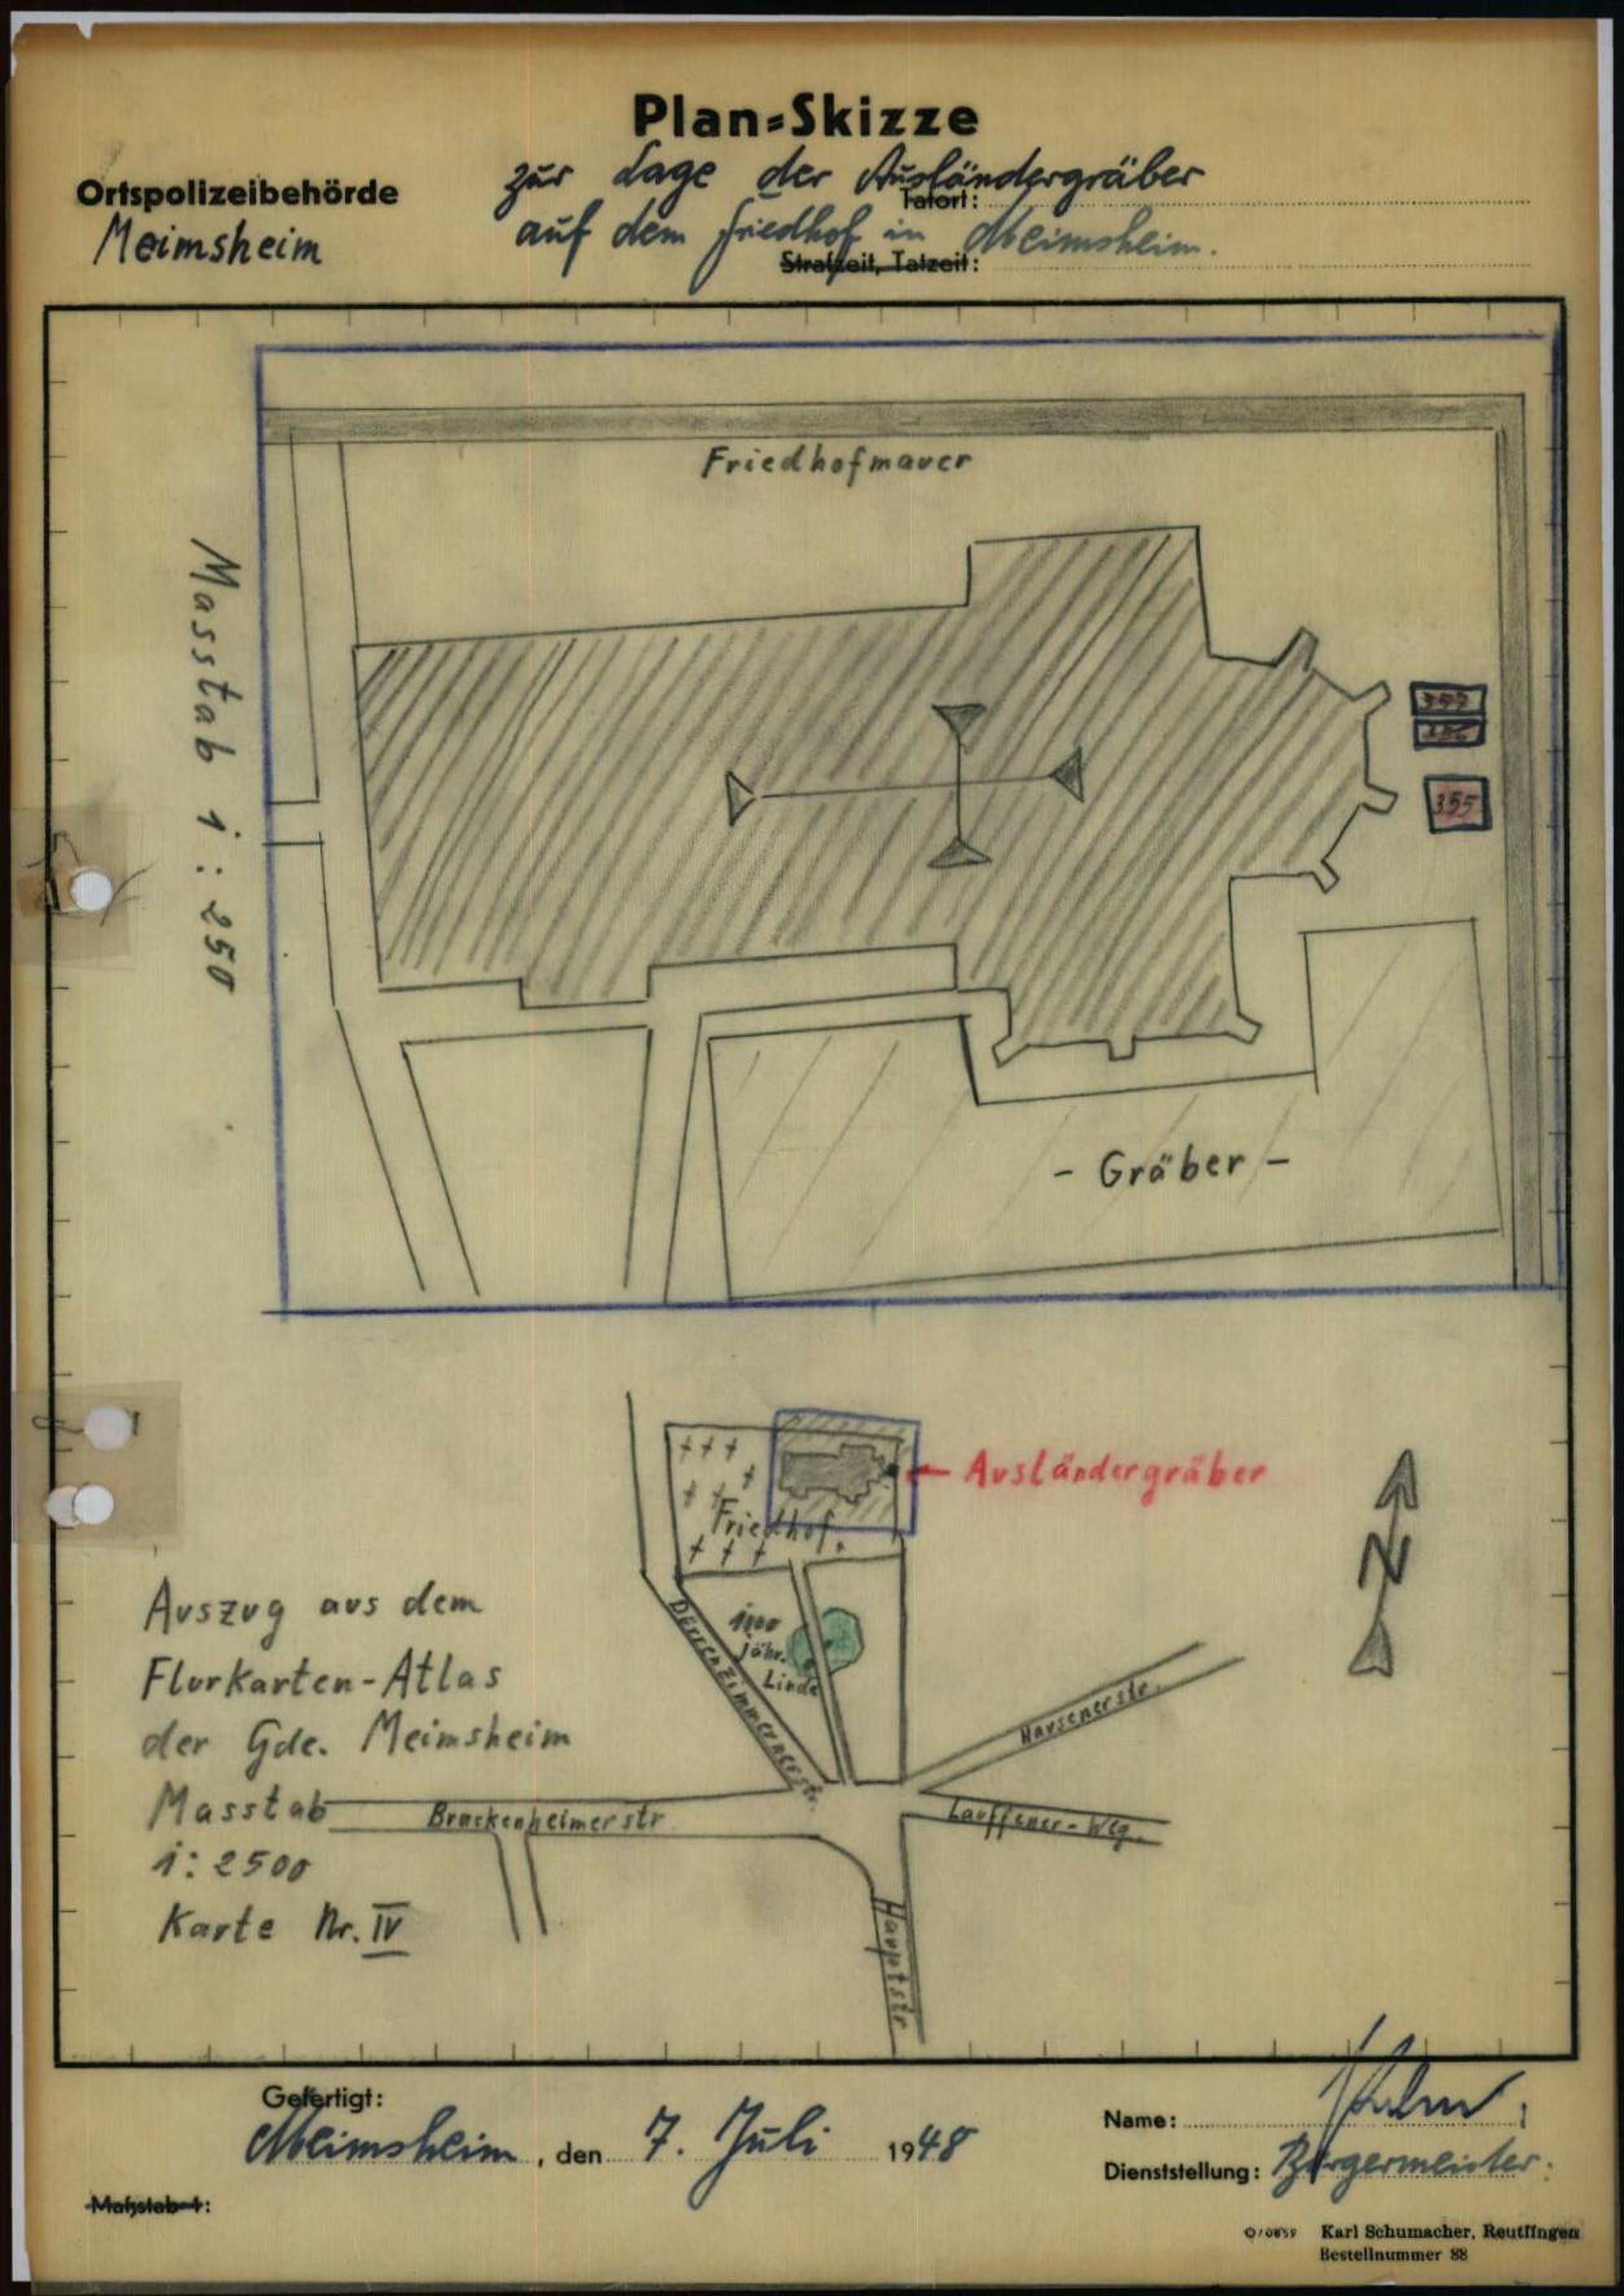 Plan=Skizze
Ortspolizeibehörde
Meimsheim
zur Lage der Ausländergräber
Tatort:
auf dem Friedhof in Meimsheim.
Strafzeit, Tatzeit:
Friedhofmauer
Masstab 1:250
355
- Gräber -
Ausländergräber
Friedhof
N
1000
Jähr.
Linde
Dürrenzimmernerstr.
Hausenerstr.
Brackenheimerstr
Lauffener-Weg.
Hauptstr
Auszug aus dem
Flurkarten-Atlas
der Gde. Meimsheim
Masstab
1:2500
Karte Nr. IV
Gefertigt:
Meimsheim, den 7. Juli 1948
Name:
Dienststellung: Bürgermeister.
Maßstab 1:
Karl Schumacher, Reutlingen
Bestellnummer 88